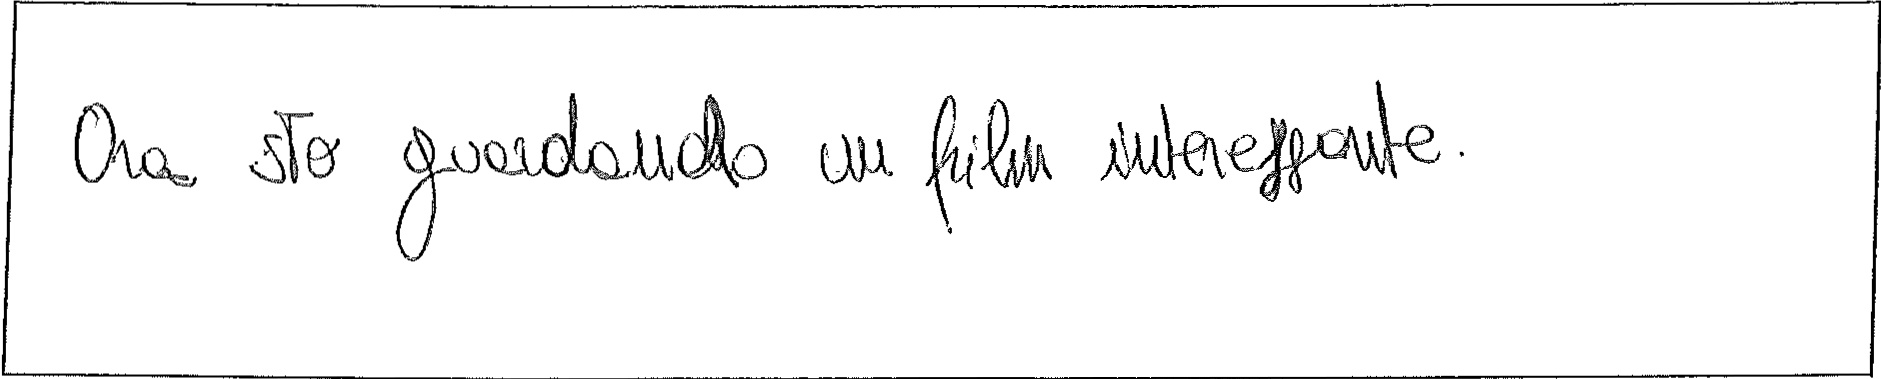 Ora sto guardando un film interessante.